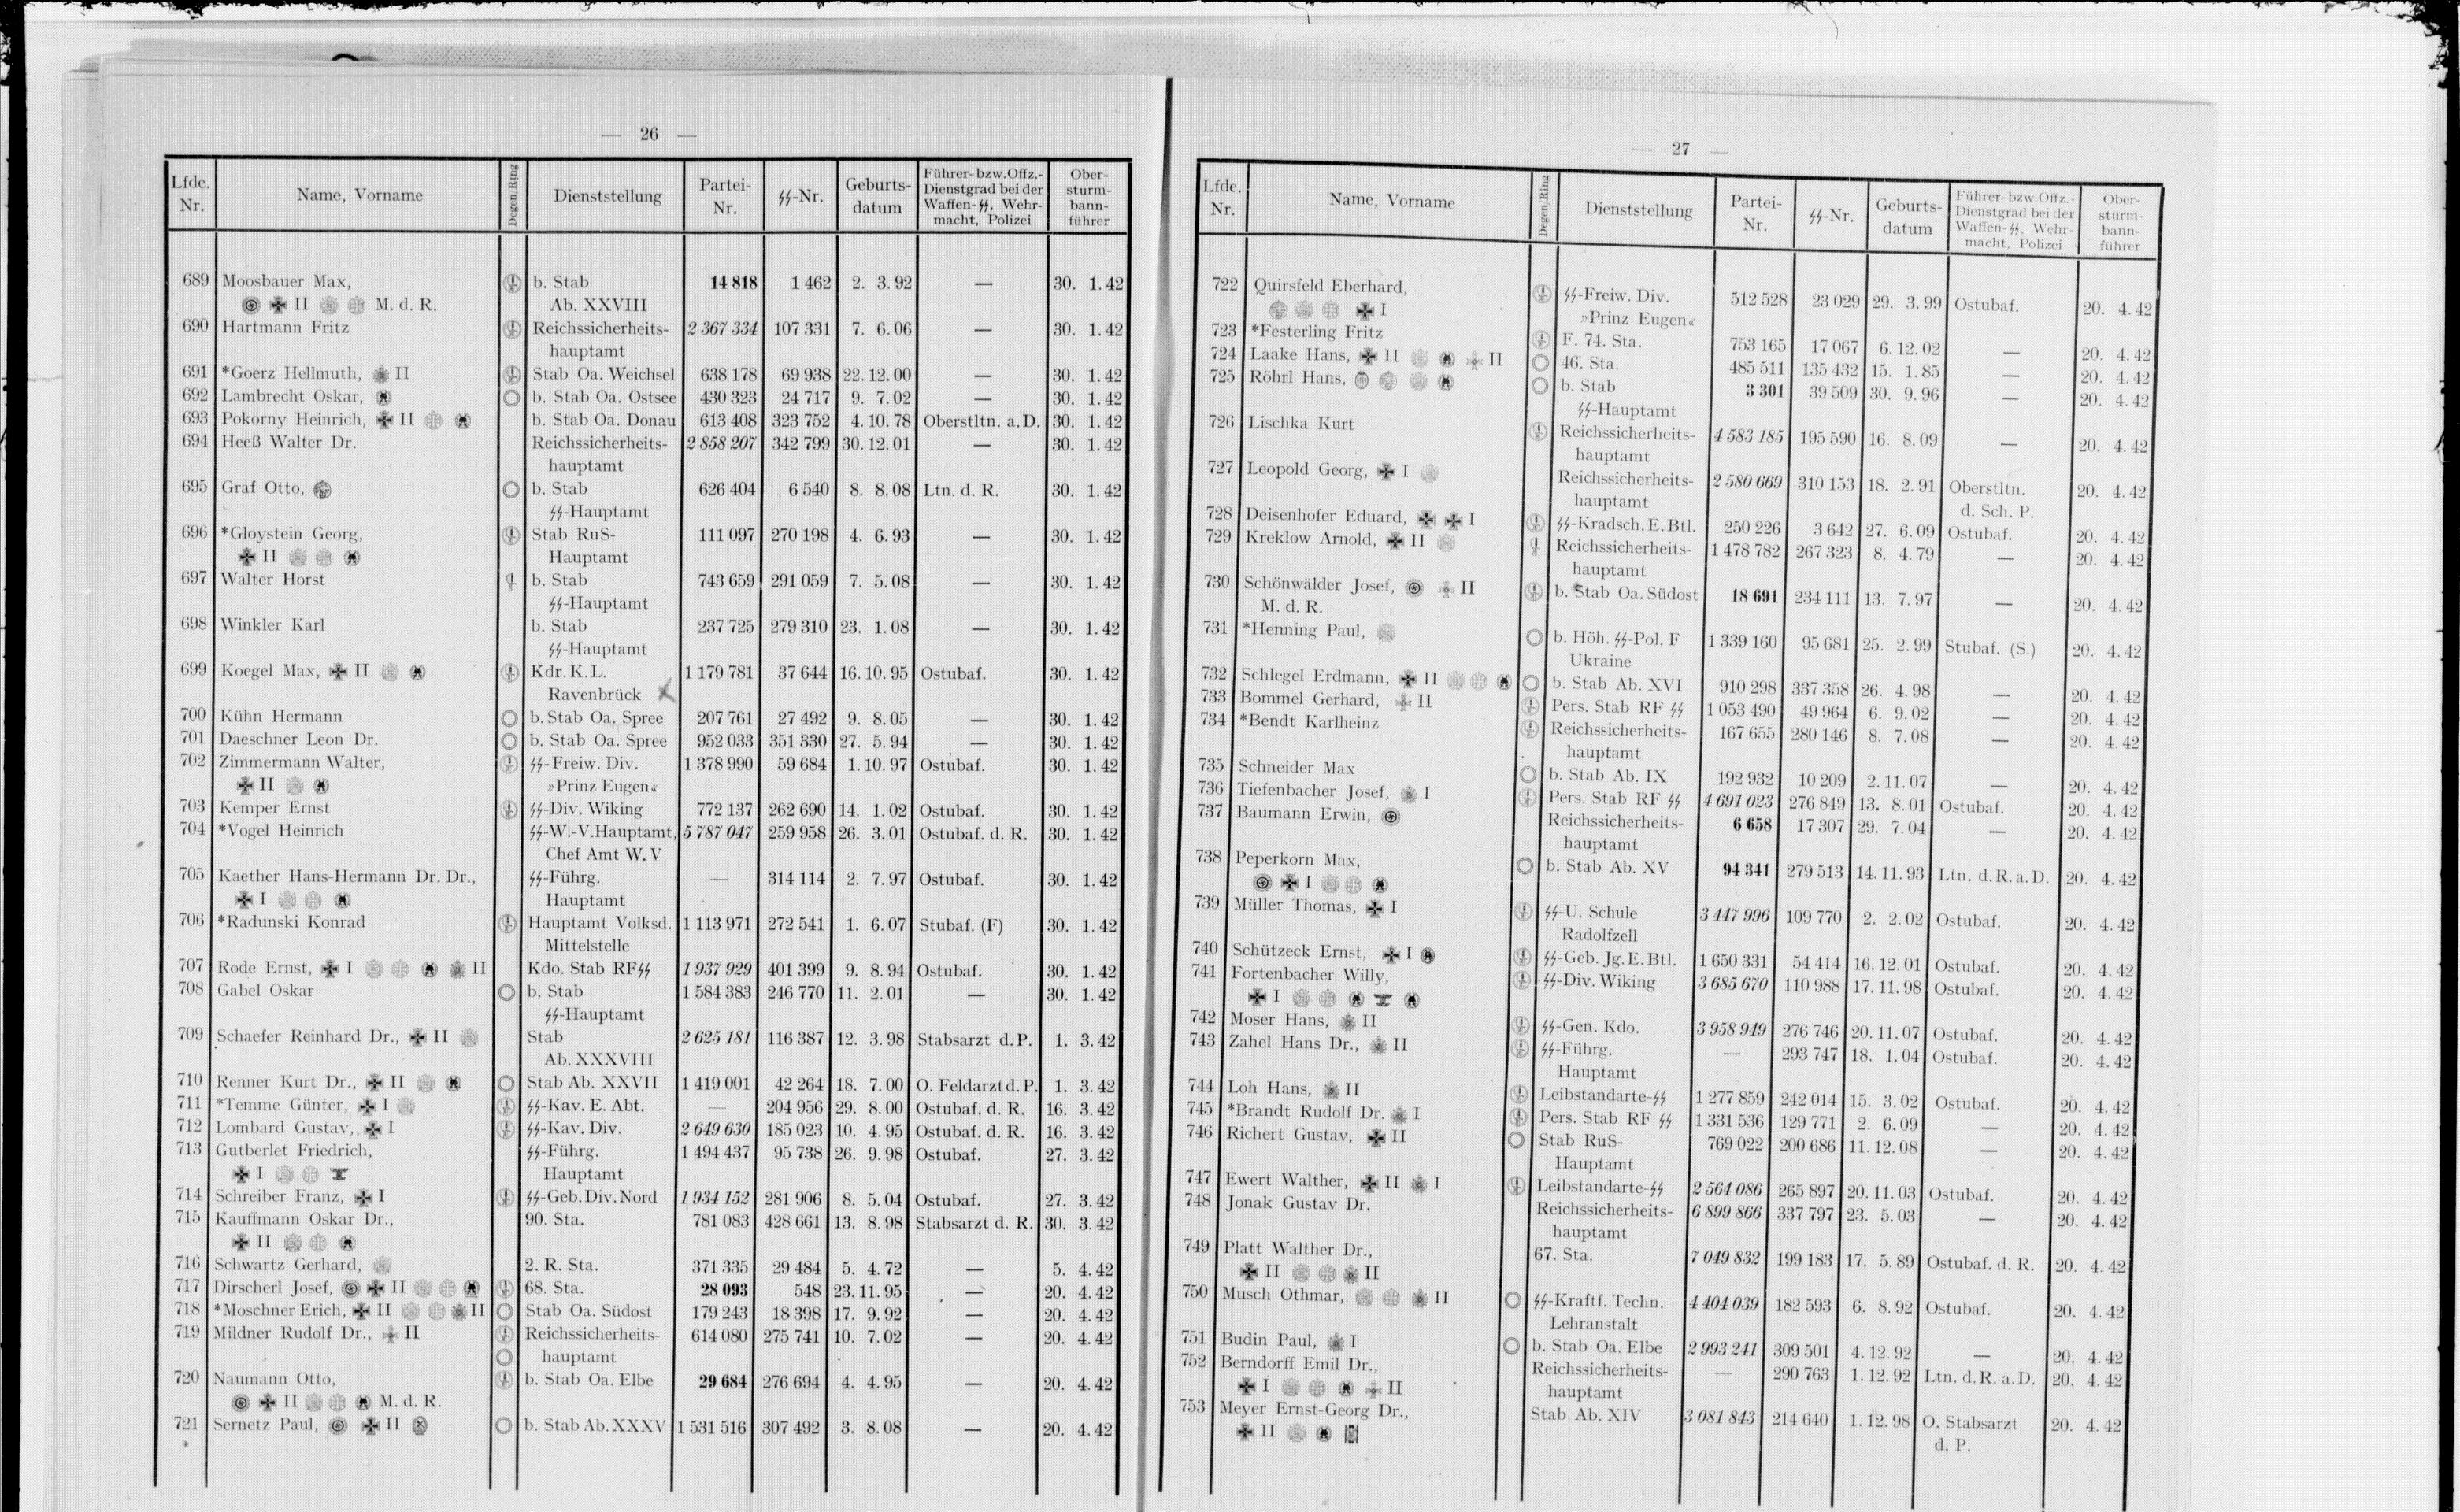 — 26 —
Lfde. Nr. Name, Vorname Degen/Ring Dienststellung Partei-Nr. ᛋᛋ-Nr. Geburts-datum Führer- bzw. Offz.-Dienstgrad bei der Waffen-ᛋᛋ, Wehr-macht, Polizei Ober-sturm-bann-führer
689 Moosbauer Max, b. Stab 14 818 1 462 2. 3. 92 — 30. 1. 42
II M. d. R. Ab. XXVIII
690 Hartmann Fritz Reichssicherheits- 2 367 334 107 331 7. 6. 06 — 30. 1. 42
hauptamt
691 *Goerz Hellmuth, II Stab Oa. Weichsel 638 178 69 938 22. 12. 00 — 30. 1. 42
692 Lambrecht Oskar, b. Stab Oa. Ostsee 430 323 24 717 9. 7. 02 — 30. 1. 42
693 Pokorny Heinrich, II b. Stab Oa. Donau 613 408 323 752 4. 10. 78 Oberstltn. a. D. 30. 1. 42
694 Heeß Walter Dr. Reichssicherheits- 2 858 207 342 799 30. 12. 01 — 30. 1. 42
hauptamt
695 Graf Otto, b. Stab 626 404 6 540 8. 8. 08 Ltn. d. R. 30. 1. 42
ᛋᛋ-Hauptamt
696 *Gloystein Georg, Stab RuS- 111 097 270 198 4. 6. 93 — 30. 1. 42
II Hauptamt
697 Walter Horst b. Stab 743 659 291 059 7. 5. 08 — 30. 1. 42
ᛋᛋ-Hauptamt
698 Winkler Karl b. Stab 237 725 279 310 23. 1. 08 — 30. 1. 42
ᛋᛋ-Hauptamt
699 Koegel Max, II Kdr. K. L. 1 179 781 37 644 16. 10. 95 Ostubaf. 30. 1. 42
Ravenbrück
700 Kühn Hermann b. Stab Oa. Spree 207 761 27 492 9. 8. 05 — 30. 1. 42
701 Daeschner Leon Dr. b. Stab Oa. Spree 952 033 351 330 27. 5. 94 — 30. 1. 42
702 Zimmermann Walter, ᛋᛋ-Freiw. Div. 1 378 990 59 684 1. 10. 97 Ostubaf. 30. 1. 42
II »Prinz Eugen«
703 Kemper Ernst ᛋᛋ-Div. Wiking 772 137 262 690 14. 1. 02 Ostubaf. 30. 1. 42
704 *Vogel Heinrich ᛋᛋ-W.-V.Hauptamt, 5 787 047 259 958 26. 3. 01 Ostubaf. d. R. 30. 1. 42
Chef Amt W. V
705 Kaether Hans-Hermann Dr. Dr., ᛋᛋ-Führg. — 314 114 2. 7. 97 Ostubaf. 30. 1. 42
I Hauptamt
706 *Radunski Konrad Hauptamt Volksd. 1 113 971 272 541 1. 6. 07 Stubaf. (F) 30. 1. 42
Mittelstelle
707 Rode Ernst, I II Kdo. Stab RFᛋᛋ 1 937 929 401 399 9. 8. 94 Ostubaf. 30. 1. 42
708 Gabel Oskar b. Stab 1 584 383 246 770 11. 2. 01 — 30. 1. 42
ᛋᛋ-Hauptamt
709 Schaefer Reinhard Dr., II Stab 2 625 181 116 387 12. 3. 98 Stabsarzt d. P. 1. 3. 42
Ab. XXXVIII
710 Renner Kurt Dr., II Stab Ab. XXVII 1 419 001 42 264 18. 7. 00 O. Feldarzt d. P. 1. 3. 42
711 *Temme Günter, I ᛋᛋ-Kav. E. Abt. — 204 956 29. 8. 00 Ostubaf. d. R. 16. 3. 42
712 Lombard Gustav, I ᛋᛋ-Kav. Div. 2 649 630 185 023 10. 4. 95 Ostubaf. d. R. 16. 3. 42
713 Gutberlet Friedrich, ᛋᛋ-Führg. 1 494 437 95 738 26. 9. 98 Ostubaf. 27. 3. 42
I Hauptamt
714 Schreiber Franz, I ᛋᛋ-Geb. Div. Nord 1 934 152 281 906 8. 5. 04 Ostubaf. 27. 3. 42
715 Kauffmann Oskar Dr., 90. Sta. 781 083 428 661 13. 8. 98 Stabsarzt d. R. 30. 3. 42
II
716 Schwartz Gerhard, 2. R. Sta. 371 335 29 484 5. 4. 72 — 5. 4. 42
717 Dirscherl Josef, II 68. Sta. 28 093 548 23. 11. 95 — 20. 4. 42
718 *Moschner Erich, II II Stab Oa. Südost 179 243 18 398 17. 9. 92 — 20. 4. 42
719 Mildner Rudolf Dr., II Reichssicherheits- 614 080 275 741 10. 7. 02 — 20. 4. 42
hauptamt
720 Naumann Otto, b. Stab Oa. Elbe 29 684 276 694 4. 4. 95 — 20. 4. 42
II M. d. R.
721 Sernetz Paul, II b. Stab Ab. XXXV 1 531 516 307 492 3. 8. 08 — 20. 4. 42
— 27 —
Lfde. Nr. Name, Vorname Degen/Ring Dienststellung Partei-Nr. ᛋᛋ-Nr. Geburts-datum Führer- bzw. Offz.-Dienstgrad bei der Waffen-ᛋᛋ, Wehr-macht, Polizei Ober-sturm-bann-führer
722 Quirsfeld Eberhard, ᛋᛋ-Freiw. Div. 512 528 23 029 29. 3. 99 Ostubaf. 20. 4. 42
I »Prinz Eugen«
723 *Festerling Fritz F. 74. Sta. 753 165 17 067 6. 12. 02 — 20. 4. 42
724 Laake Hans, II II 46. Sta. 485 511 135 432 15. 1. 85 — 20. 4. 42
725 Röhrl Hans, b. Stab 3 301 39 509 30. 9. 96 — 20. 4. 42
ᛋᛋ-Hauptamt
726 Lischka Kurt Reichssicherheits- 4 583 185 195 590 16. 8. 09 — 20. 4. 42
hauptamt
727 Leopold Georg, I Reichssicherheits- 2 580 669 310 153 18. 2. 91 Oberstltn. 20. 4. 42
hauptamt d. Sch. P.
728 Deisenhofer Eduard, I ᛋᛋ-Kradsch. E. Btl. 250 226 3 642 27. 6. 09 Ostubaf. 20. 4. 42
729 Kreklow Arnold, II Reichssicherheits- 1 478 782 267 323 8. 4. 79 — 20. 4. 42
hauptamt
730 Schönwälder Josef, II b. Stab Oa. Südost 18 691 234 111 13. 7. 97 — 20. 4. 42
M. d. R.
731 *Henning Paul, b. Höh. ᛋᛋ-Pol. F 1 339 160 95 681 25. 2. 99 Stubaf. (S.) 20. 4. 42
Ukraine
732 Schlegel Erdmann, II b. Stab Ab. XVI 910 298 337 358 26. 4. 98 — 20. 4. 42
733 Bommel Gerhard, II Pers. Stab RF ᛋᛋ 1 053 490 49 964 6. 9. 02 — 20. 4. 42
734 *Bendt Karlheinz Reichssicherheits- 167 655 280 146 8. 7. 08 — 20. 4. 42
hauptamt
735 Schneider Max b. Stab Ab. IX 192 932 10 209 2. 11. 07 — 20. 4. 42
736 Tiefenbacher Josef, I Pers. Stab RF ᛋᛋ 4 691 023 276 849 13. 8. 01 Ostubaf. 20. 4. 42
737 Baumann Erwin, Reichssicherheits- 6 658 17 307 29. 7. 04 — 20. 4. 42
hauptamt
738 Peperkorn Max, b. Stab Ab. XV 94 341 279 513 14. 11. 93 Ltn. d. R. a. D. 20. 4. 42
I
739 Müller Thomas, I ᛋᛋ-U. Schule 3 447 996 109 770 2. 2. 02 Ostubaf. 20. 4. 42
Radolfzell
740 Schützeck Ernst, I ᛋᛋ-Geb. Jg. E. Btl. 1 650 331 54 414 16. 12. 01 Ostubaf. 20. 4. 42
741 Fortenbacher Willy, ᛋᛋ-Div. Wiking 3 685 670 110 988 17. 11. 98 Ostubaf. 20. 4. 42
I
742 Moser Hans, II ᛋᛋ-Gen. Kdo. 3 958 949 276 746 20. 11. 07 Ostubaf. 20. 4. 42
743 Zahel Hans Dr., II ᛋᛋ-Führg. — 293 747 18. 1. 04 Ostubaf. 20. 4. 42
Hauptamt
744 Loh Hans, II Leibstandarte-ᛋᛋ 1 277 859 242 014 15. 3. 02 Ostubaf. 20. 4. 42
745 *Brandt Rudolf Dr. I Pers. Stab RF ᛋᛋ 1 331 536 129 771 2. 6. 09 — 20. 4. 42
746 Richert Gustav, II Stab RuS- 769 022 200 686 11. 12. 08 — 20. 4. 42
Hauptamt
747 Ewert Walther, II I Leibstandarte-ᛋᛋ 2 564 086 265 897 20. 11. 03 Ostubaf. 20. 4. 42
748 Jonak Gustav Dr. Reichssicherheits- 6 899 866 337 797 23. 5. 03 — 20. 4. 42
hauptamt
749 Platt Walther Dr., 67. Sta. 7 049 832 199 183 17. 5. 89 Ostubaf. d. R. 20. 4. 42
II II
750 Musch Othmar, II ᛋᛋ-Kraftf. Techn. 4 404 039 182 593 6. 8. 92 Ostubaf. 20. 4. 42
Lehranstalt
751 Budin Paul, I b. Stab Oa. Elbe 2 993 241 309 501 4. 12. 92 — 20. 4. 42
752 Berndorff Emil Dr., Reichssicherheits- — 290 763 1. 12. 92 Ltn. d. R. a. D. 20. 4. 42
I II hauptamt
753 Meyer Ernst-Georg Dr., Stab Ab. XIV 3 081 843 214 640 1. 12. 98 O. Stabsarzt 20. 4. 42
II d. P.